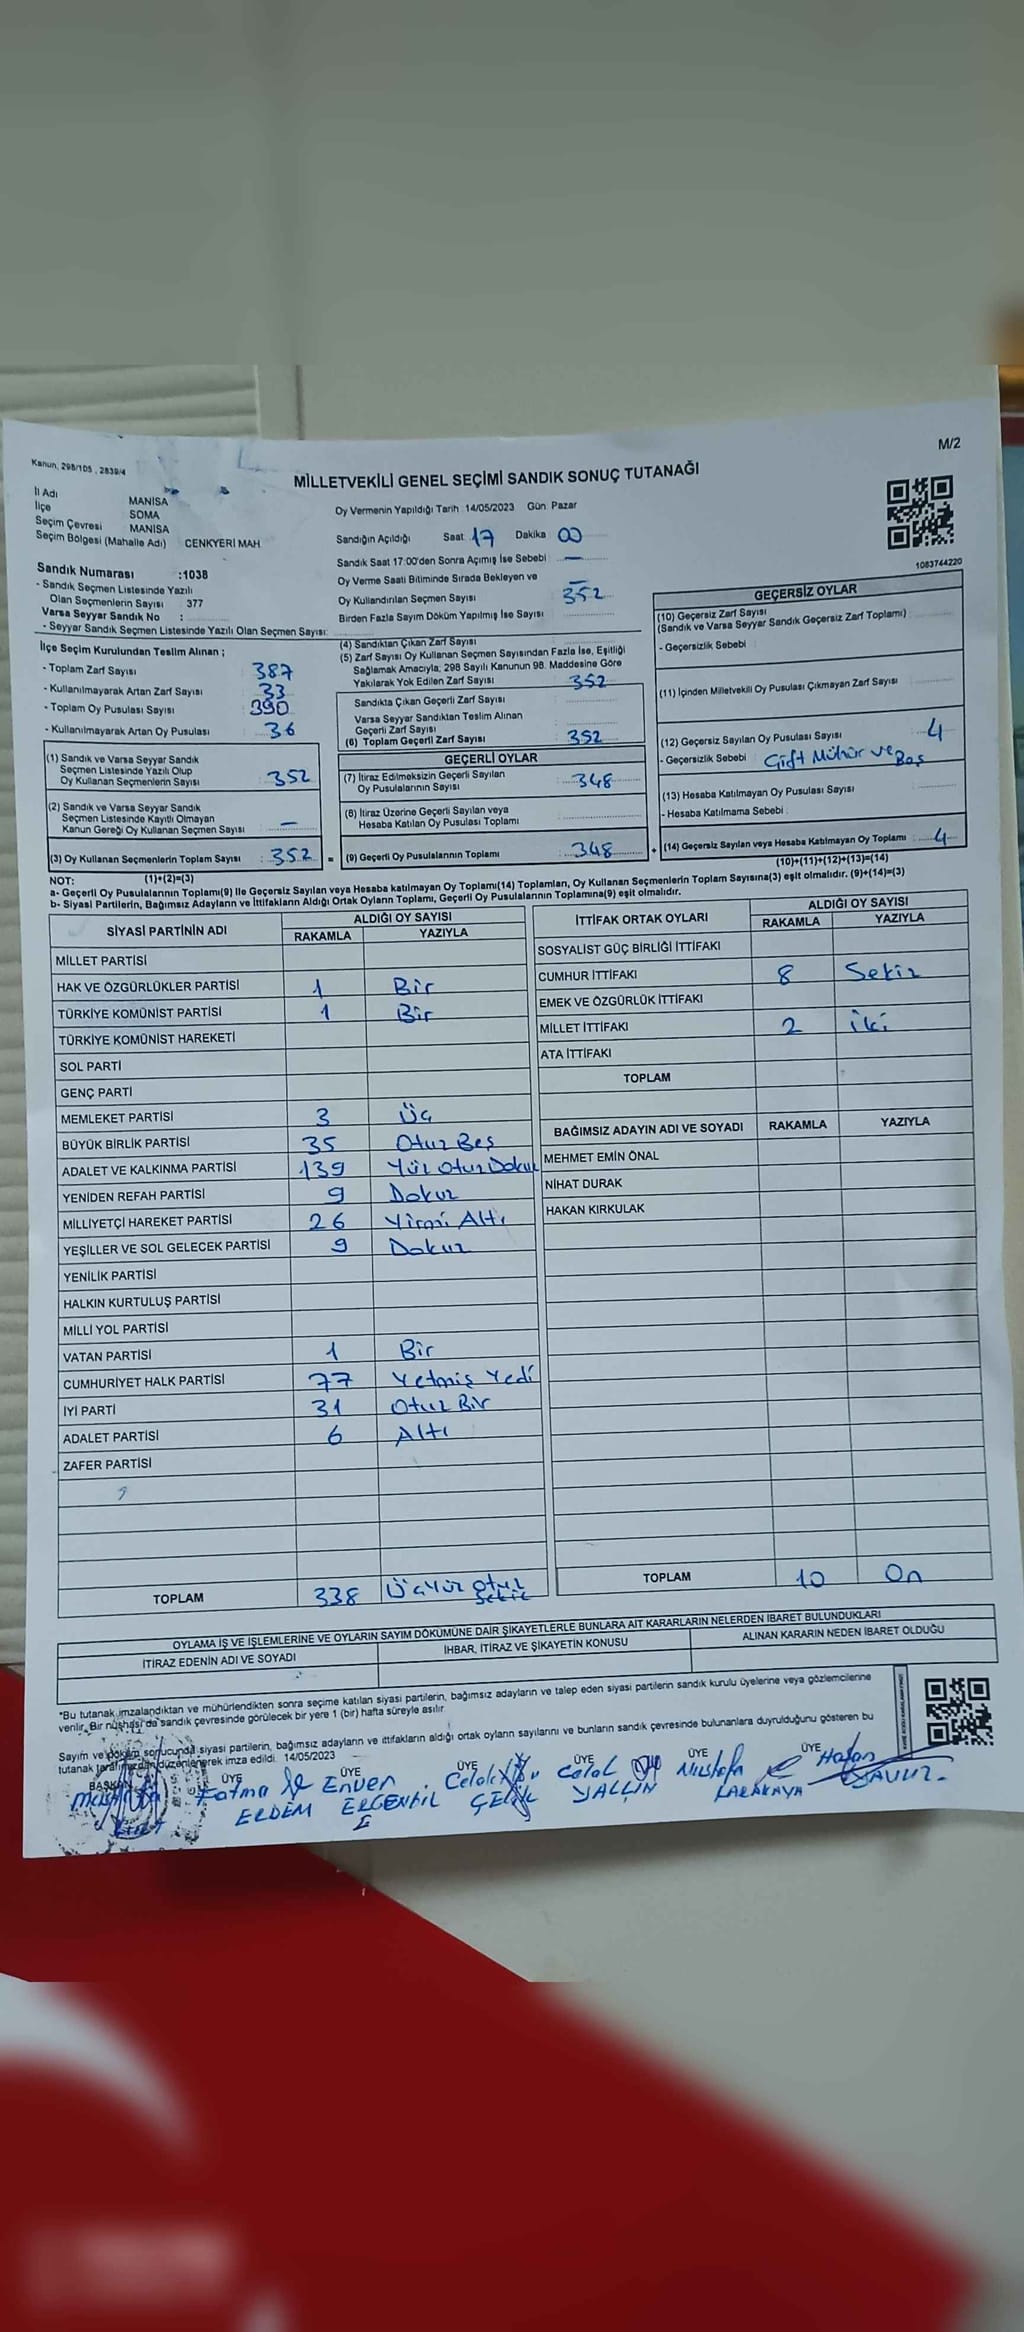 M/2
Kanun, 298/105 , 2839/4
MİLLETVEKİLİ GENEL SEÇİMİ SANDIK SONUÇ TUTANAĞI
İl Adı MANİSA
İlçe SOMA
Seçim Çevresi MANİSA
Seçim Bölgesi (Mahalle Adı) CENKYERİ MAH.
Sandık Numarası :1038
- Sandık Seçmen Listesinde Yazılı
Olan Seçmenlerin Sayısı 377
Varsa Seyyar Sandık No :
- Seyyar Sandık Seçmen Listesinde Yazılı Olan Seçmen Sayısı:
Oy Vermenin Yapıldığı Tarih 14/05/2023 Gün Pazar
Sandığın Açıldığı Saat 17 Dakika 00
Sandık Saat 17:00'den Sonra Açımış İse Sebebi —
Oy Verme Saati Bitiminde Sırada Bekleyen ve
Oy Kullandırılan Seçmen Sayısı 352
Birden Fazla Sayım Döküm Yapılmış İse Sayısı
1083744220
İlçe Seçim Kurulundan Teslim Alınan ;
- Toplam Zarf Sayısı 387
- Kullanılmayarak Artan Zarf Sayısı 33
- Toplam Oy Pusulası Sayısı 390
- Kullanılmayarak Artan Oy Pusulası 36
(1) Sandık ve Varsa Seyyar Sandık
Seçmen Listesinde Yazılı Olup
Oy Kullanan Seçmenlerin Sayısı : 352
(2) Sandık ve Varsa Seyyar Sandık
Seçmen Listesinde Kayıtlı Olmayan
Kanun Gereği Oy Kullanan Seçmen Sayısı : —
(3) Oy Kullanan Seçmenlerin Toplam Sayısı : 352 =
(1)+(2)=(3)
(4) Sandıktan Çıkan Zarf Sayısı
(5) Zarf Sayısı Oy Kullanan Seçmen Sayısından Fazla İse, Eşitliği
Sağlamak Amacıyla, 298 Sayılı Kanunun 98. Maddesine Göre
Yakılarak Yok Edilen Zarf Sayısı 352
Sandıkta Çıkan Geçerli Zarf Sayısı
Varsa Seyyar Sandıktan Teslim Alınan
Geçerli Zarf Sayısı
(6) Toplam Geçerli Zarf Sayısı 352
GEÇERLİ OYLAR
(7) İtiraz Edilmeksizin Geçerli Sayılan
Oy Pusulalarının Sayısı : 348
(8) İtiraz Üzerine Geçerli Sayılan veya
Hesaba Katılan Oy Pusulası Toplamı
(9) Geçerli Oy Pusulalarının Toplamı : 348 +
GEÇERSİZ OYLAR
(10) Geçersiz Zarf Sayısı
(Sandık ve Varsa Seyyar Sandık Geçersiz Zarf Toplamı) :
- Geçersizlik Sebebi :
(11) İçinden Milletvekili Oy Pusulası Çıkmayan Zarf Sayısı
(12) Geçersiz Sayılan Oy Pusulası Sayısı : 4
- Geçersizlik Sebebi : Çift Mühür ve Boş
(13) Hesaba Katılmayan Oy Pusulası Sayısı
- Hesaba Katılmama Sebebi :
(14) Geçersiz Sayılan veya Hesaba Katılmayan Oy Toplamı : 4
(10)+(11)+(12)+(13)=(14)
NOT:
a- Geçerli Oy Pusulalarının Toplamı(9) İle Geçersiz Sayılan veya Hesaba katılmayan Oy Toplamı(14) Toplamları, Oy Kullanan Seçmenlerin Toplam Sayısına(3) eşit olmalıdır. (9)+(14)=(3)
b- Siyasi Partilerin, Bağımsız Adayların ve İttifakların Aldığı Ortak Oyların Toplamı, Geçerli Oy Pusulalarının Toplamına(9) eşit olmalıdır.
SİYASİ PARTİNİN ADI ALDIĞI OY SAYISI
RAKAMLA YAZIYLA
MİLLET PARTİSİ
HAK VE ÖZGÜRLÜKLER PARTİSİ 1 Bir
TÜRKİYE KOMÜNİST PARTİSİ 1 Bir
TÜRKİYE KOMÜNİST HAREKETİ
SOL PARTİ
GENÇ PARTİ
MEMLEKET PARTİSİ 3 Üç
BÜYÜK BİRLİK PARTİSİ 35 Otuz Beş
ADALET VE KALKINMA PARTİSİ 139 Yüz Otuz Dokuz
YENİDEN REFAH PARTİSİ 9 Dokuz
MİLLİYETÇİ HAREKET PARTİSİ 26 Yirmi Altı
YEŞİLLER VE SOL GELECEK PARTİSİ 9 Dokuz
YENİLİK PARTİSİ
HALKIN KURTULUŞ PARTİSİ
MİLLİ YOL PARTİSİ
VATAN PARTİSİ 1 Bir
CUMHURİYET HALK PARTİSİ 77 Yetmiş Yedi
İYİ PARTİ 31 Otuz Bir
ADALET PARTİSİ 6 Altı
ZAFER PARTİSİ
TOPLAM 338 Üçyüz Otuz Sekiz
İTTİFAK ORTAK OYLARI ALDIĞI OY SAYISI
RAKAMLA YAZIYLA
SOSYALİST GÜÇ BİRLİĞİ İTTİFAKI
CUMHUR İTTİFAKI 8 Sekiz
EMEK VE ÖZGÜRLÜK İTTİFAKI
MİLLET İTTİFAKI 2 İki
ATA İTTİFAKI
TOPLAM
BAĞIMSIZ ADAYIN ADI VE SOYADI RAKAMLA YAZIYLA
MEHMET EMİN ÖNAL
NİHAT DURAK
HAKAN KIRKULAK
TOPLAM 10 On
OYLAMA İŞ VE İŞLEMLERİNE VE OYLARIN SAYIM DÖKÜMÜNE DAİR ŞİKAYETLERLE BUNLARA AİT KARARLARIN NELERDEN İBARET BULUNDUKLARI
İTİRAZ EDENİN ADI VE SOYADI İHBAR, İTİRAZ VE ŞİKAYETİN KONUSU ALINAN KARARIN NEDEN İBARET OLDUĞU
*Bu tutanak imzalandıktan ve mühürlendikten sonra seçime katılan siyasi partilerin, bağımsız adayların ve talep eden siyasi partilerin sandık kurulu üyelerine veya gözlemcilerine
verilir. Bir nüshası da sandık çevresinde görülecek bir yere 1 (bir) hafta süreyle asılır.
Sayım ve döküm sonucunda siyasi partilerin, bağımsız adayların ve ittifakların aldığı ortak oyların sayılarını ve bunların sandık çevresinde bulunanlara duyrulduğunu gösteren bu
tutanak tarafımızdan düzenlenerek imza edildi. 14/05/2023
BAŞKAN ÜYE ÜYE ÜYE ÜYE ÜYE ÜYE
Mustafa
Fatma ERDEM
Enver ERGENBİL
Celal ÇELİK
Celal YALÇIN
Mustafa KARAKAYA
Hasan YAVUZ